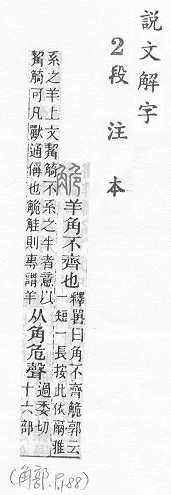 説文解字
2段注本
觤
羊角不齊也
釋嘼曰角不齊觤郭云
一短一長按此依爾雅
系之羊上文觢觭不系之牛者意以
觢觭可凡獸通偁也觤觟則專謂羊
从角危聲
過委切
十六部
(角部. 88)